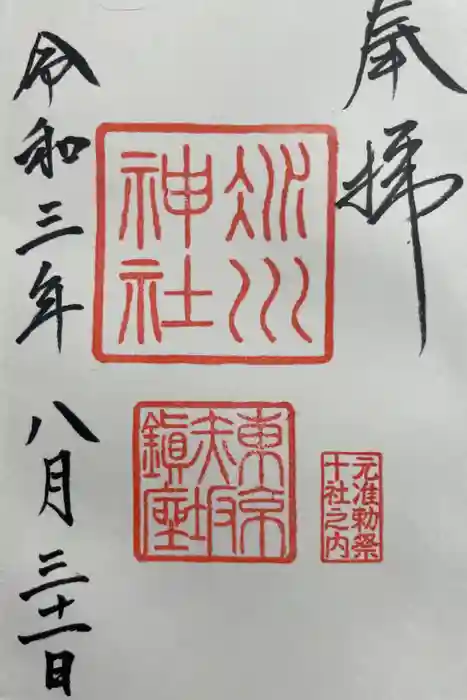 奉拝
元准勅祭
十社之内
冰川
神社
東京
赤坂
鎭座
令和三年八月三十一日